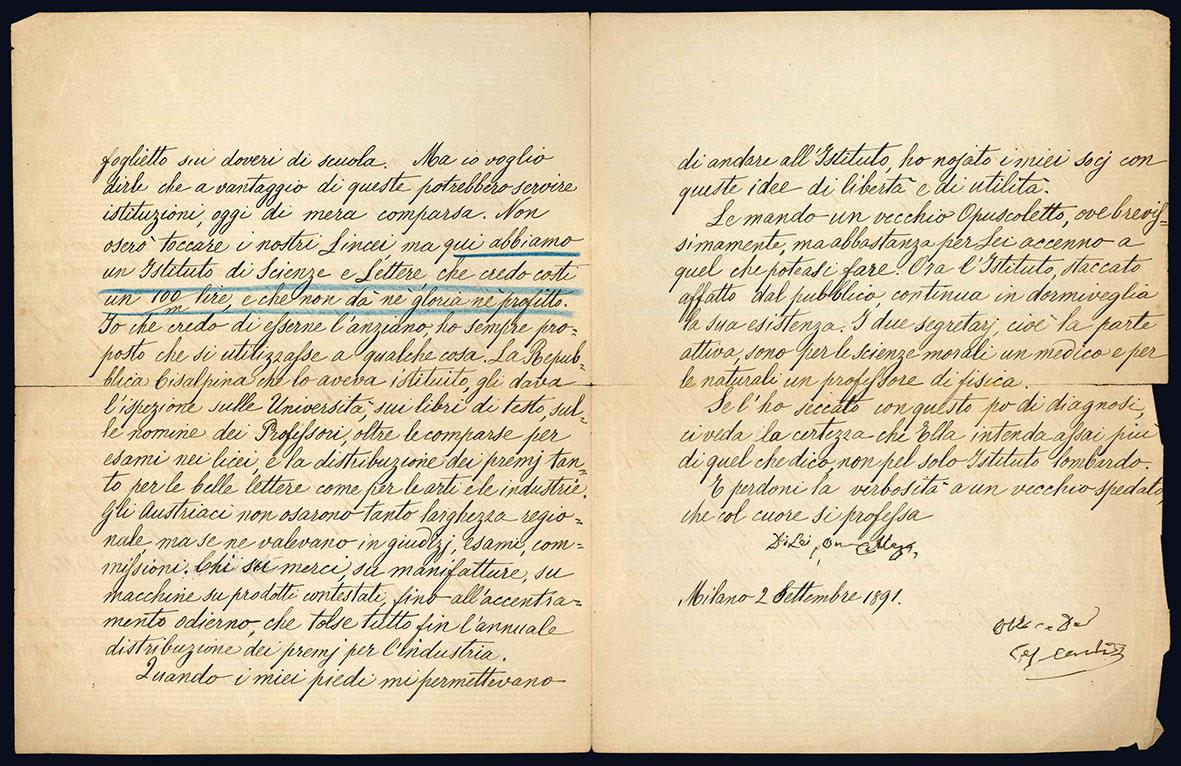 foglietto sui doveri di scuola. Ma io voglio
dirle che a vantaggio di queste potrebbero servire
istituzioni, oggi di mera comparsa. Non
oserò toccare i nostri Lincei ma qui abbiamo
un Istituto di Scienze e Lettere che credo costi
un 100m lire, e che non dà nè gloria nè profitto.
Io che credo di esserne l'anziano, ho sempre pro=
posto che si utilizzasse a qualche cosa. La Repub=
blica Cisalpina che lo aveva istituito, gli dava
l'ispezione sulle Università, sui libri di testo, sul=
le nomine dei Professori, oltre le comparse per
esami nei licei, e la distribuzione dei premj tan=
to per le belle lettere come per le arti e le industrie.
Gli Austriaci non osarono tanto larghezza regio=
nale ma se ne valevano in giudizj, esami, com=
missioni. merci, su manifatture, su
macchine su prodotti contestati, fino all'accentra=
mento odierno, che tolse tutto fin l'annuale
distribuzione dei premj per l'Industria.
Quando i miei piedi mi permettevano
di andare all'Istituto, ho nojato i miei socj con
queste idee di libertà e di utilità.
Le mando un vecchio Opuscoletto, ove brevis=
simamente, ma abbastanza per Lei accenno a
quel che poteasi fare. Ora l'Istituto, staccato
affatto dal pubblico continua in dormiveglia
la sua esistenza. I due segretarj, cioè la parte
attiva, sono per le scienze morali un medico e per
le naturali un professore di fisica.
Se l'ho seccato con questo po di diagnosi,
ci veda la certezza che Ella intenda assai più
di quel che dico, non pel solo Istituto lombardo.
E perdoni la verbosità a un vecchio spedato,
che col cuore si professa
Di Lei,
Milano 2 Settembre 1891.